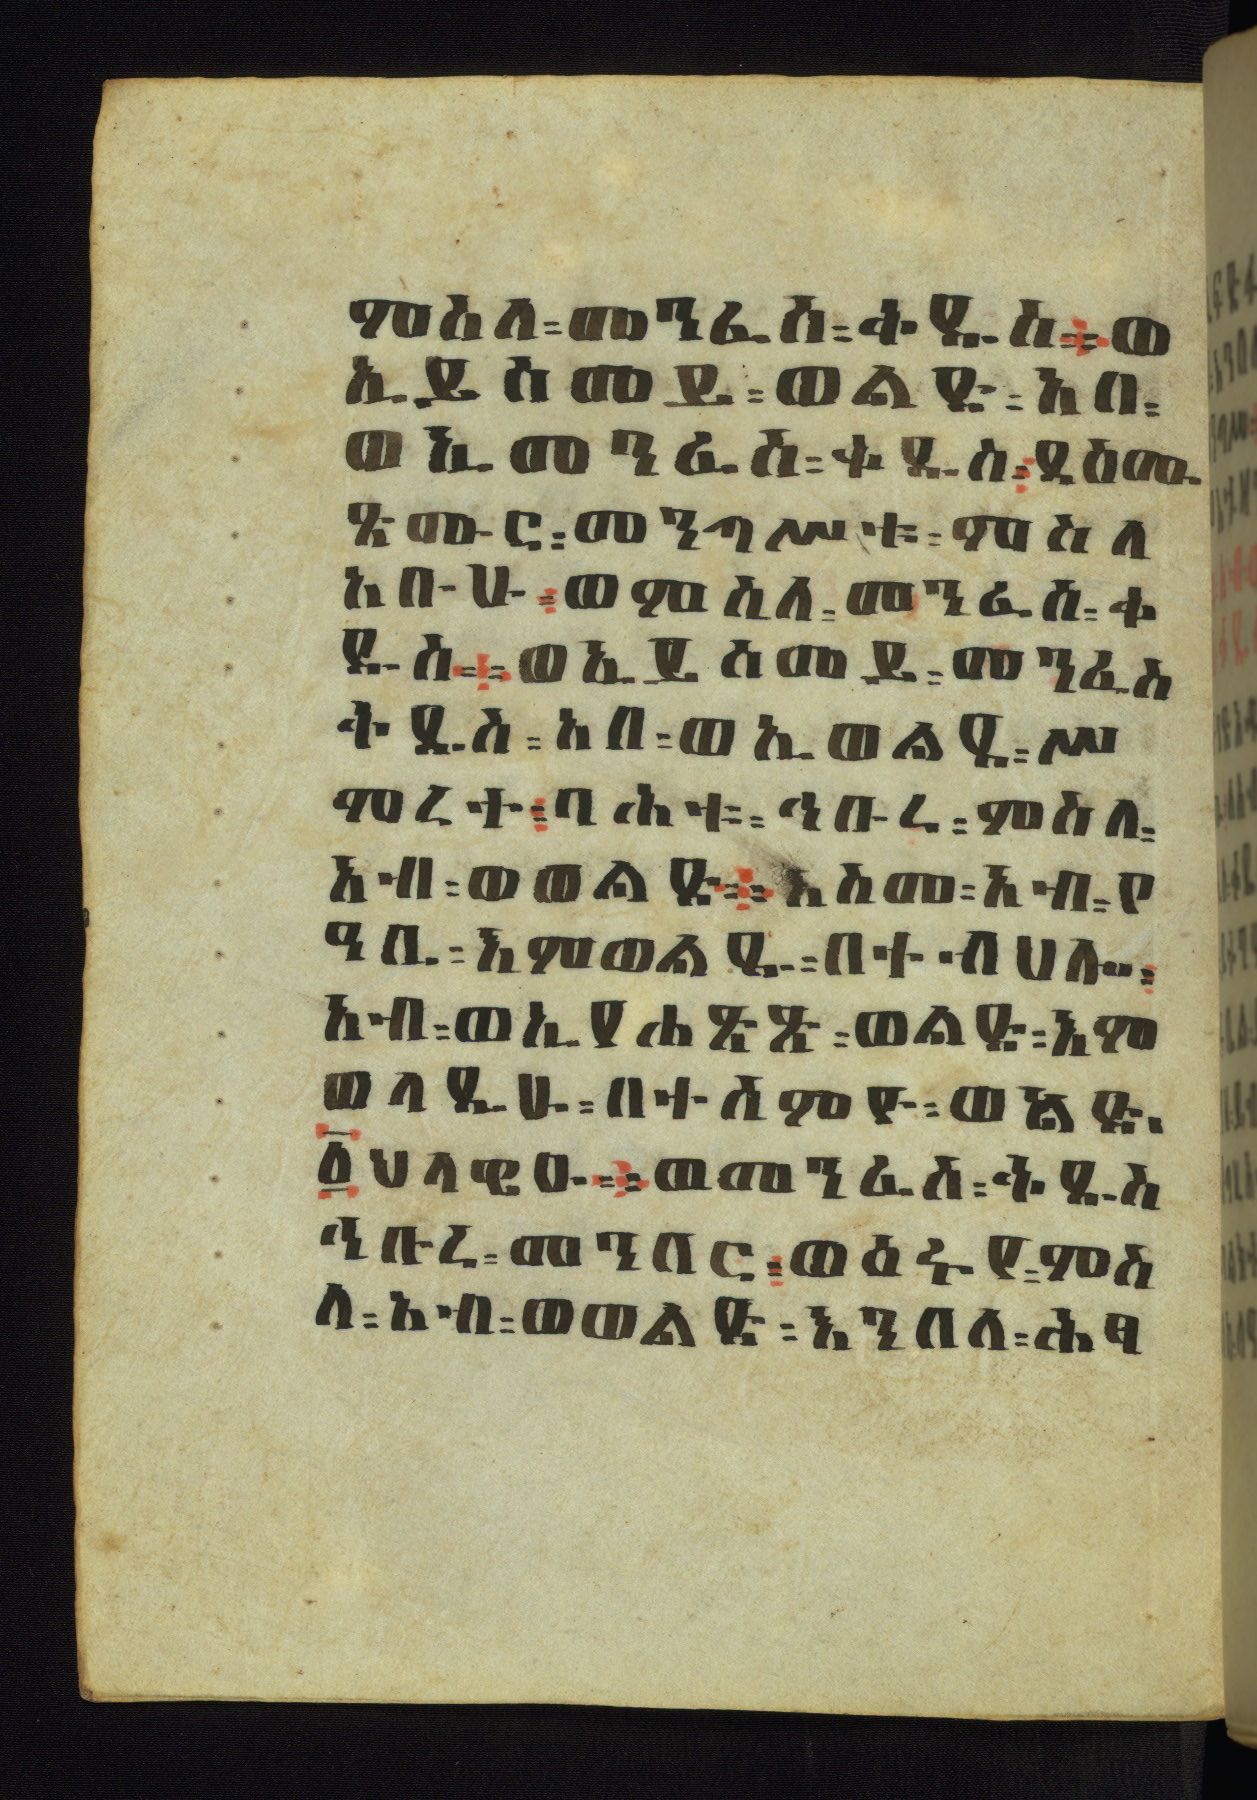 ምስለ፡መንፈስ፡ቅዱስ።ወ
ኢይሰመይ፡ወልድ፡አበ፡
ወኢመንፈስ፡ቅዱስ፡ይዕመ
ጽሙር፡መንግሥቱ፡ምስለ
አቡሁ፡ወምስለ፡መንፈስ፡ቅ
ዱስ።ወኢይሰመይ፡መንፈስ
ቅዱስ፡አበ፡ወኢወልደ፡ሥ
ምረት፡ባሕቱ፡ኅቡረ፡ምስለ፡
አብ፡ወወልድ።እስመ፡አብ፡የ
ዓቢ፡እምወልዱ፡በተብህለ፡
አብ፡ወኢየሐጽጽ፡ወልድ፡እም
ወላዲሁ፡በተሰምዮ፡ወልድ፡
፩ህላዊሁ።ወመንፈስ፡ቅዱስ
ኅቡረ፡መንበር፡ወዕሩየ፡ምስ
ለ፡አብ፡ወወልድ፡እንበለ፡ሕፀ